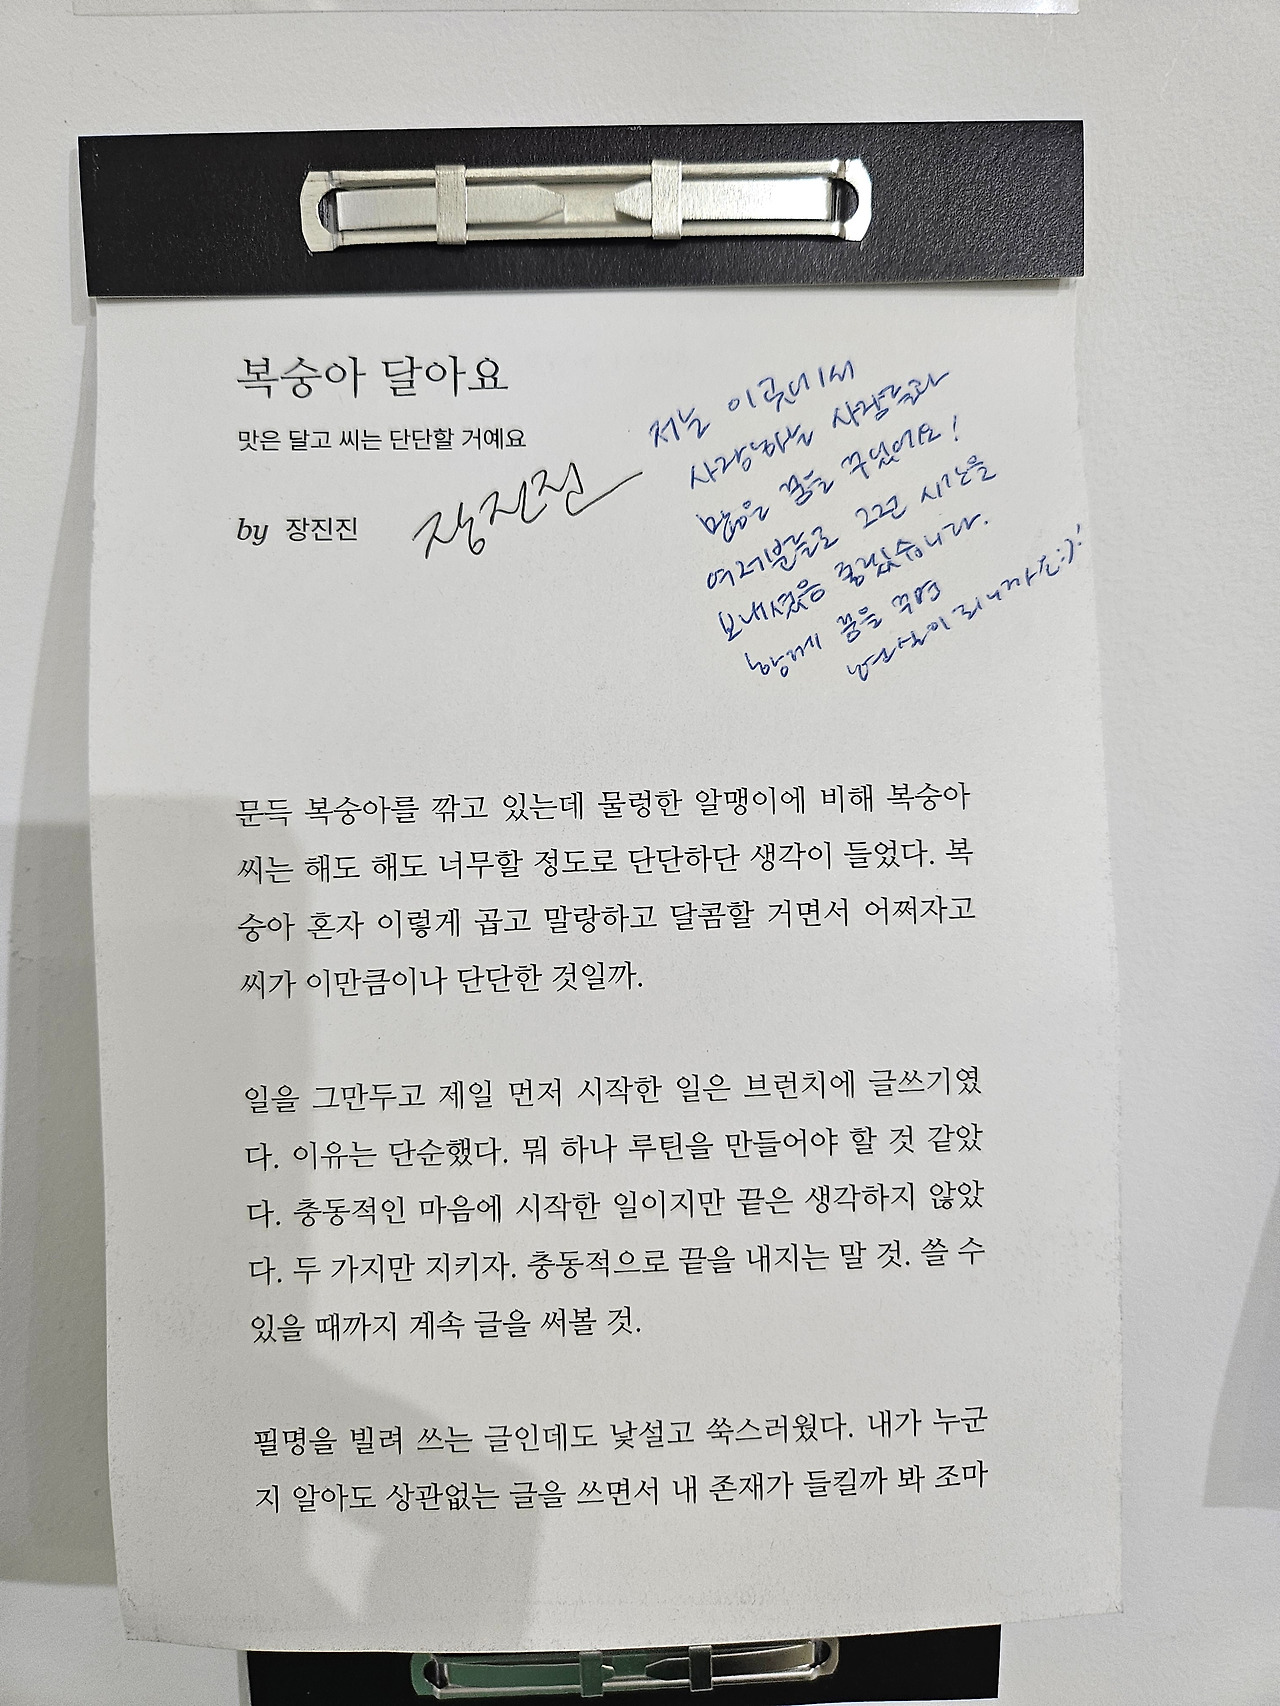 복숭아 달아요
맛은 달고 씨는 단단할 거예요
by 장진진
장진진
저는 이곳에서
사랑하는 사람들과
많은 꿈을 꾸었어요!
여러분들도 그런 시간을
보내셨음 좋겠습니다.
함께 꿈을 꾸면
현실이 되니까요:)!
문득 복숭아를 깎고 있는데 물렁한 알맹이에 비해 복숭아
씨는 해도 해도 너무할 정도로 단단하단 생각이 들었다. 복
숭아 혼자 이렇게 곱고 말랑하고 달콤할 거면서 어쩌자고
씨가 이만큼이나 단단한 것일까.
일을 그만두고 제일 먼저 시작한 일은 브런치에 글쓰기였
다. 이유는 단순했다. 뭐 하나 루틴을 만들어야 할 것 같았
다. 충동적인 마음에 시작한 일이지만 끝은 생각하지 않았
다. 두 가지만 지키자. 충동적으로 끝을 내지는 말 것. 쓸 수
있을 때까지 계속 글을 써볼 것.
필명을 빌려 쓰는 글인데도 낯설고 쑥스러웠다. 내가 누군
지 알아도 상관없는 글을 쓰면서 내 존재가 들킬까 봐 조마